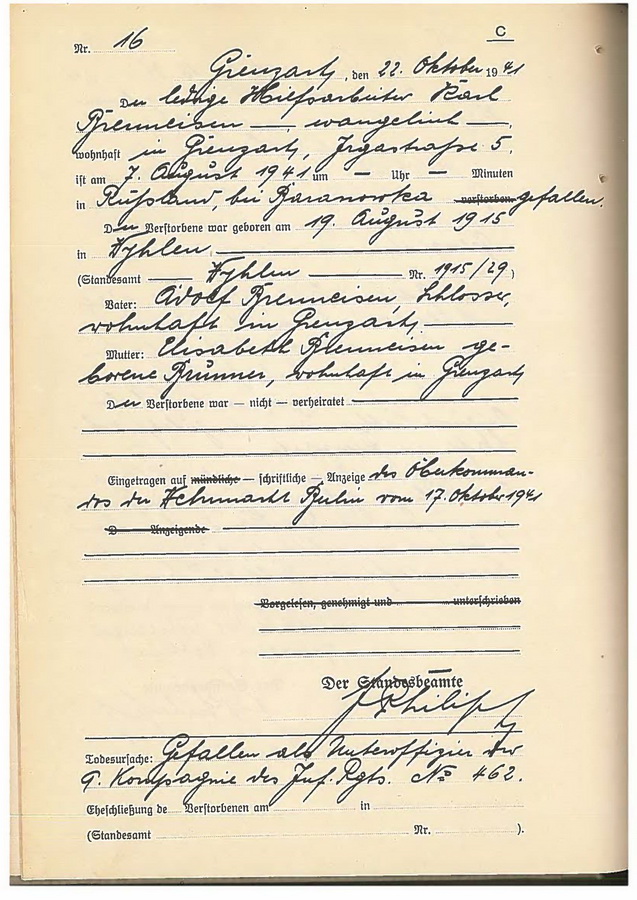 C
Nr. 16
Grenzach, den 22. Oktober 1941
Der ledige Hilfsarbeiter Karl
Brenneisen —, evangelisch —,
wohnhaft in Grenzach, Irgastraße 5,
ist am 7. August 1941 um — Uhr — Minuten
in Rußland, bei Baranowka verstorben gefallen.
Der Verstorbene war geboren am 19. August 1915
in Wyhlen
(Standesamt — Wyhlen — Nr. 1915/29)
Vater: Adolf Brenneisen, Schlosser,
wohnhaft in Grenzach.
Mutter: Elisabeth Brenneisen ge-
borene Brunner, wohnhaft in Grenzach
Der Verstorbene war — nicht — verheiratet
Eingetragen auf mündliche — schriftliche — Anzeige des Oberkomman-
dos der Wehrmacht Berlin vom 17. Oktober 1941
D Anzeigende
Vorgelesen, genehmigt und unterschrieben
Der Standesbeamte
Philipp
Todesursache: Gefallen als Unteroffizier der
9. Kompagnie des Inf. Rgts. No 462.
Eheschließung de Verstorbenen am in
(Standesamt Nr. ).